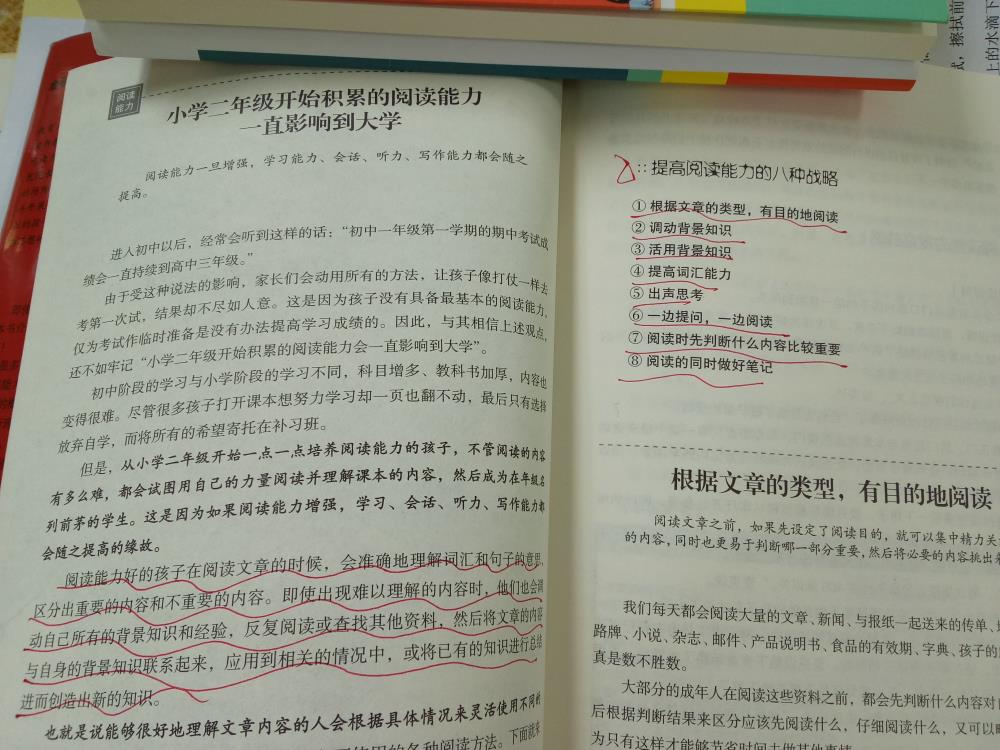 阅读
能力
小学二年级开始积累的阅读能力
一直影响到大学
阅读能力一旦增强，学习能力、会话、听力、写作能力都会随之
提高。
进入初中以后，经常会听到这样的话：“初中一年级第一学期的期中考试成
绩会一直持续到高中三年级。”
由于受这种说法的影响，家长们会动用所有的方法，让孩子像打仗一样去
考第一次试，结果却不尽如人意。这是因为孩子没有具备最基本的阅读能力，
仅为考试作临时准备是没有办法提高学习成绩的。因此，与其相信上述观点，
还不如牢记“小学二年级开始积累的阅读能力会一直影响到大学”。
初中阶段的学习与小学阶段的学习不同，科目增多、教科书加厚，内容也
变得很难。尽管很多孩子打开课本想努力学习却一页也翻不动，最后只有选择
放弃自学，而将所有的希望寄托在补习班。
但是，从小学二年级开始一点一点培养阅读能力的孩子，不管阅读的内容
有多么难，都会试图用自己的力量阅读并理解课本的内容，然后成为在年级名
列前茅的学生。这是因为如果阅读能力增强，学习、会话、听力、写作能力都
会随之提高的缘故。
阅读能力好的孩子在阅读文章的时候，会准确地理解词汇和句子的意思，
区分出重要的内容和不重要的内容。即使出现难以理解的内容时，他们也会调
动自己所有的背景知识和经验，反复阅读或查找其他资料，然后将文章的内容
与自身的背景知识联系起来，应用到相关的情况中，或将已有的知识进行总结
进而创造出新的知识。
也就是说能够很好地理解文章内容的人会根据具体情况来灵活使用不同的
的各种阅读方法。下面就来
提高阅读能力的八种战略
① 根据文章的类型，有目的地阅读
② 调动背景知识
③ 活用背景知识
④ 提高词汇能力
⑤ 出声思考
⑥ 一边提问，一边阅读
⑦ 阅读时先判断什么内容比较重要
⑧ 阅读的同时做好笔记
根据文章的类型，有目的地阅读
阅读文章之前，如果先设定了阅读目的，就可以集中精力关
的内容，同时也更易于判断哪一部分重要，然后将必要的内容挑出来
我们每天都会阅读大量的文章、新闻、与报纸一起送来的传单、
路牌、小说、杂志、邮件、产品说明书、食品的有效期、字典、孩子的
真是数不胜数。
大部分的成年人在阅读这些资料之前，都会先判断什么内容对
后根据判断结果来区分应该先阅读什么，仔细阅读什么，又可以
为只有这样才能够节省时间去做其他事情
擦拭前
上的水滴下